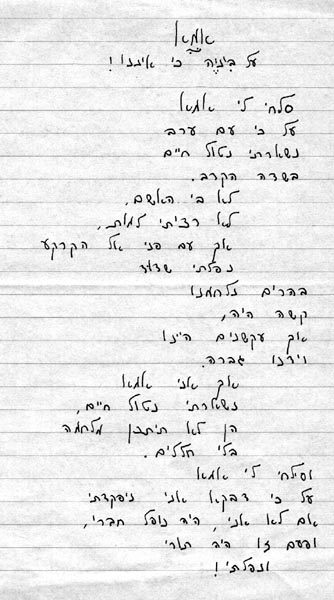 אמא
על בינייה כי איננו!
סלחי לי אמא
על כי עם ערב
נשארתי נטול חיים
בשדה הקרב.
לא בי האשם,
לא רציתי למות,
אך עם פני אל הקרקע
נפלתי שדוד
בהרים נלחמנו
קשה היה,
אך עקשנים היינו
וידנו גברה.
אך אני אמא
נשארתי נטול חיים,
הן לא תיתכן מלחמה
בלי חללים.
וסילחי לי אמא
על כי דבקא אני ניפקדתי
אם לא אני, היה נופל חברי,
ופעם זו היה תורי
ונפלתי!